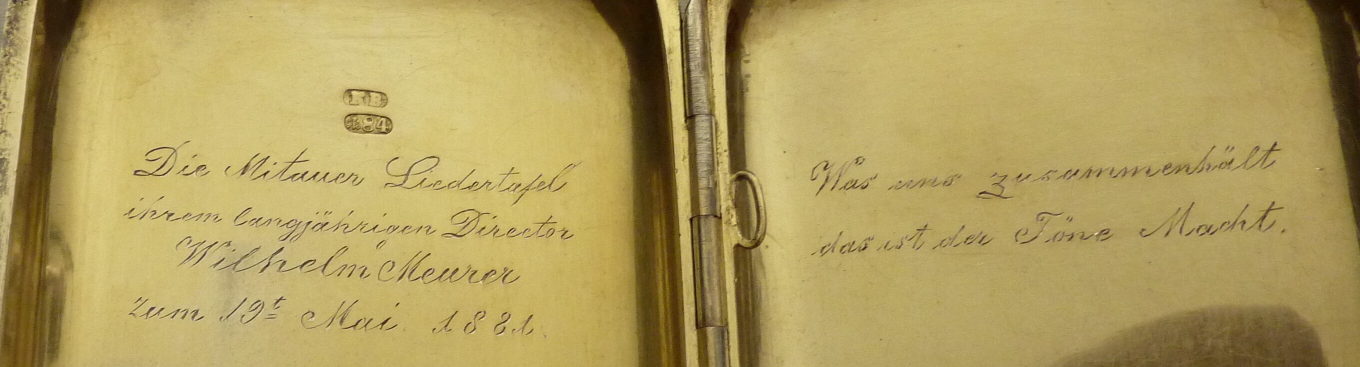 84
Die Mitauer Liedertafel
ihrem langjährigen Director
Wilhelm Meurer
zum 19t Mai 1881.
Was uns zusammenhält
das ist der Töne Macht.